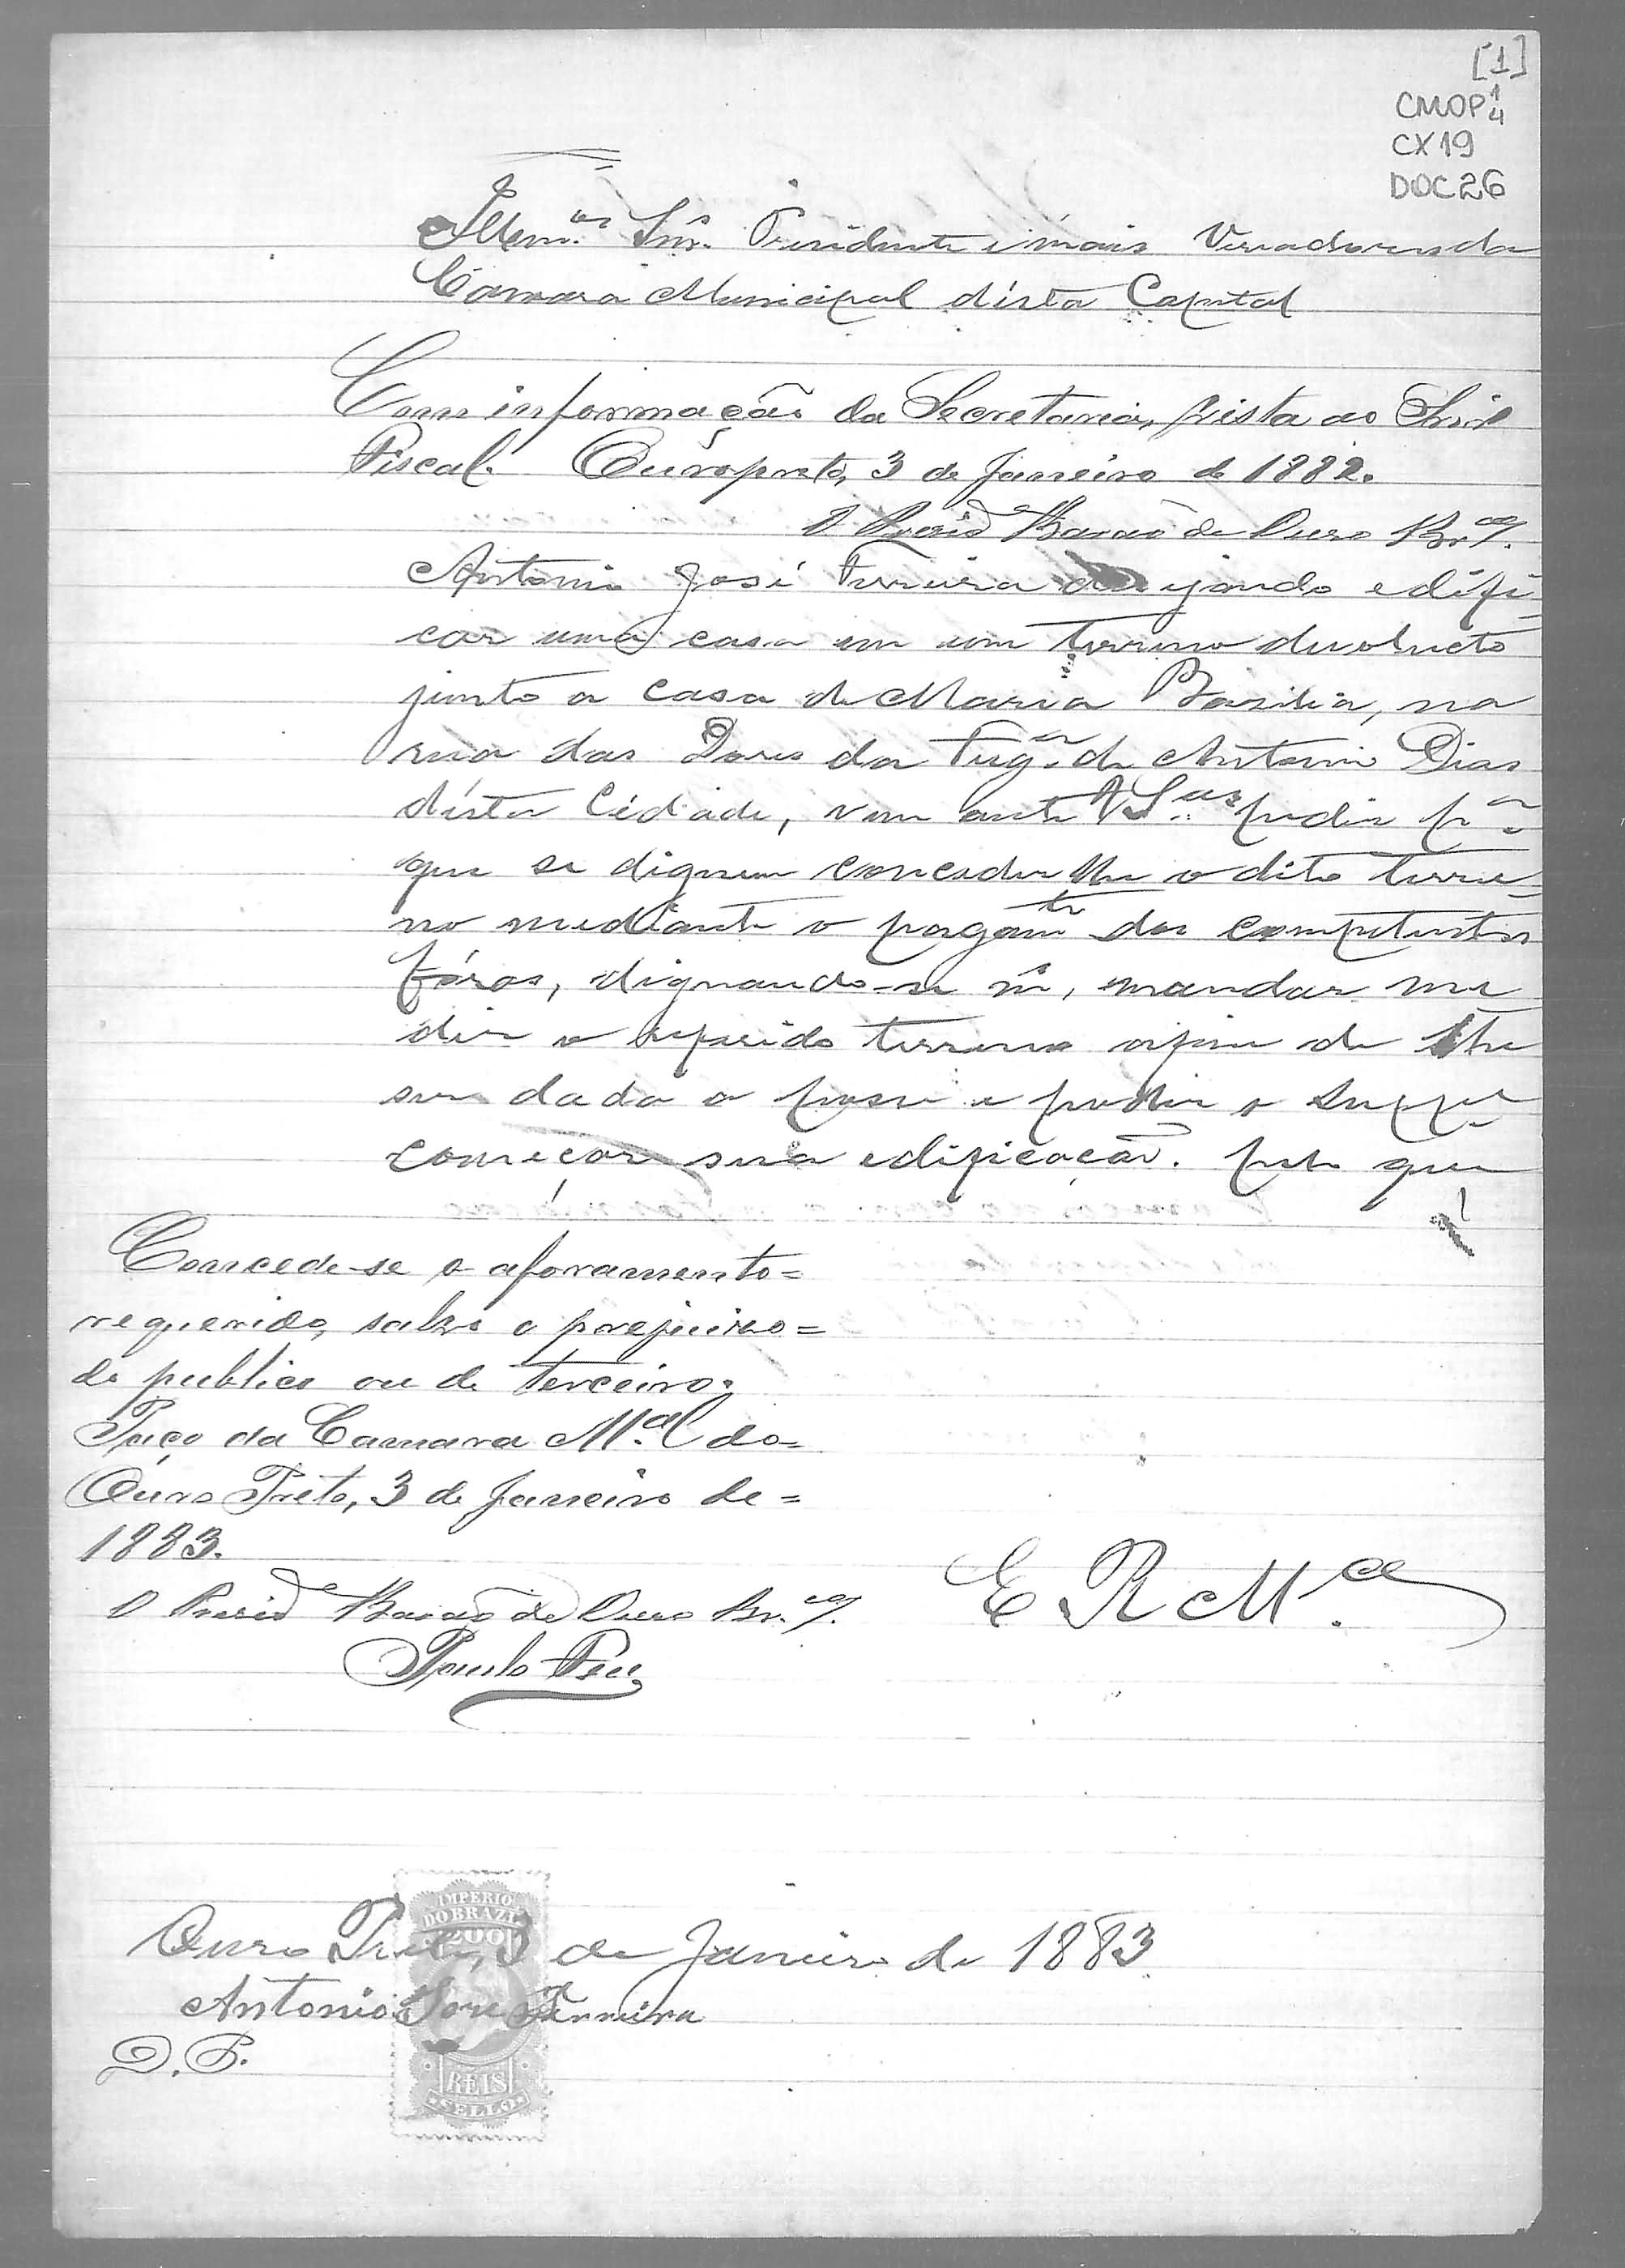 [1]
CMOP 1/4
CX19
DOC 26
Illm.os Snr.s Presidente e mais Vereadores da
Camara Municipal désta Capital
Com informação da Secretaria, vista ao Snr.
Fiscal. Ouropreto, 3 de Janeiro de 1882.
O Presid.e Barão de Ouro Br.co
Antonio José Ferreira desejando edifi-
car uma casa em um terreno devoluto
junto a casa de Maria Basilia, na
rua das Dores da Freg.a de Antonio Dias
désta Cidade, vem ante V S.as pedir p.a
que se dignem conceder lhe o dito terre-
no mediante o pagam.to dos competentes
fóros, dignando-se m, mandar me-
dir o referido terreno afim de lhe
ser dada a posse e poder o Supp.e
começar sua edificação. pelo que
Concede-se o aforamento=
requerido, salvo o prejuizo=
do publico ou de terceiro.
Paço da Camara M.al do=
Ouro Preto, 3 de Janeiro de=
1883.
O Presid.e Barão de Ouro Br.co
Paulo
E R M.ce
IMPERIO
DO BRAZIL
200
Ouro Preto, 3 de Janeiro de 1883
Antonio José Ferreira
D.P.
REIS
SELLO